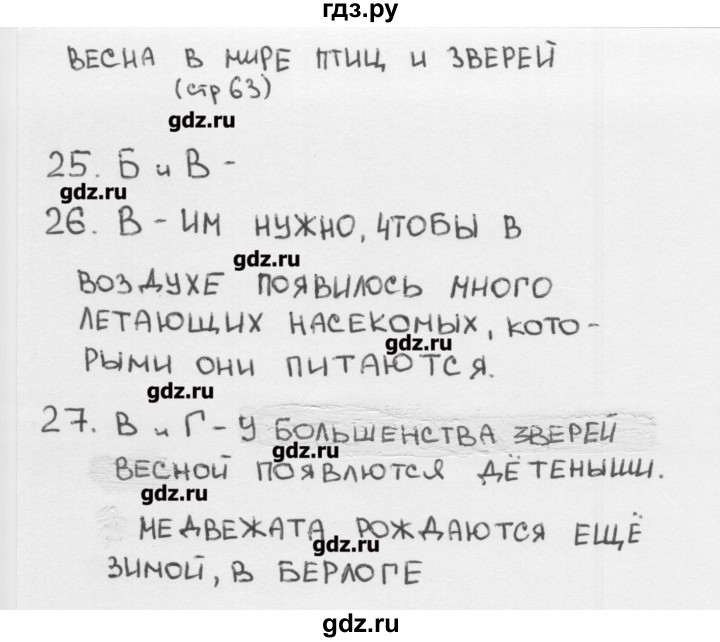 гдз.ру
ВЕСНА В МИРЕ ПТИЦ И ЗВЕРЕЙ
(стр 63)
gdz.ru
25. Б и В -
gdz.ru
26. В - ИМ НУЖНО, ЧТОБЫ В
gdz.ru
ВОЗДУХЕ ПОЯВИЛОСЬ МНОГО
ЛЕТАЮЩИХ НАСЕКОМЫХ, КОТО-
gdz.ru
РЫМИ ОНИ ПИТАЮТСЯ.
gdz.ru
27. В и Г - У БОЛЬШЕНСТВА ЗВЕРЕЙ
gdz.ru
ВЕСНОЙ ПОЯВЛЮТСЯ ДЁТЕНЫШИ.
gdz.ru
МЕДВЕЖАТА РОЖДАЮТСЯ ЕЩЁ
gdz.ru
ЗИМОЙ, В БЕРЛОГЕ
gdz.ru